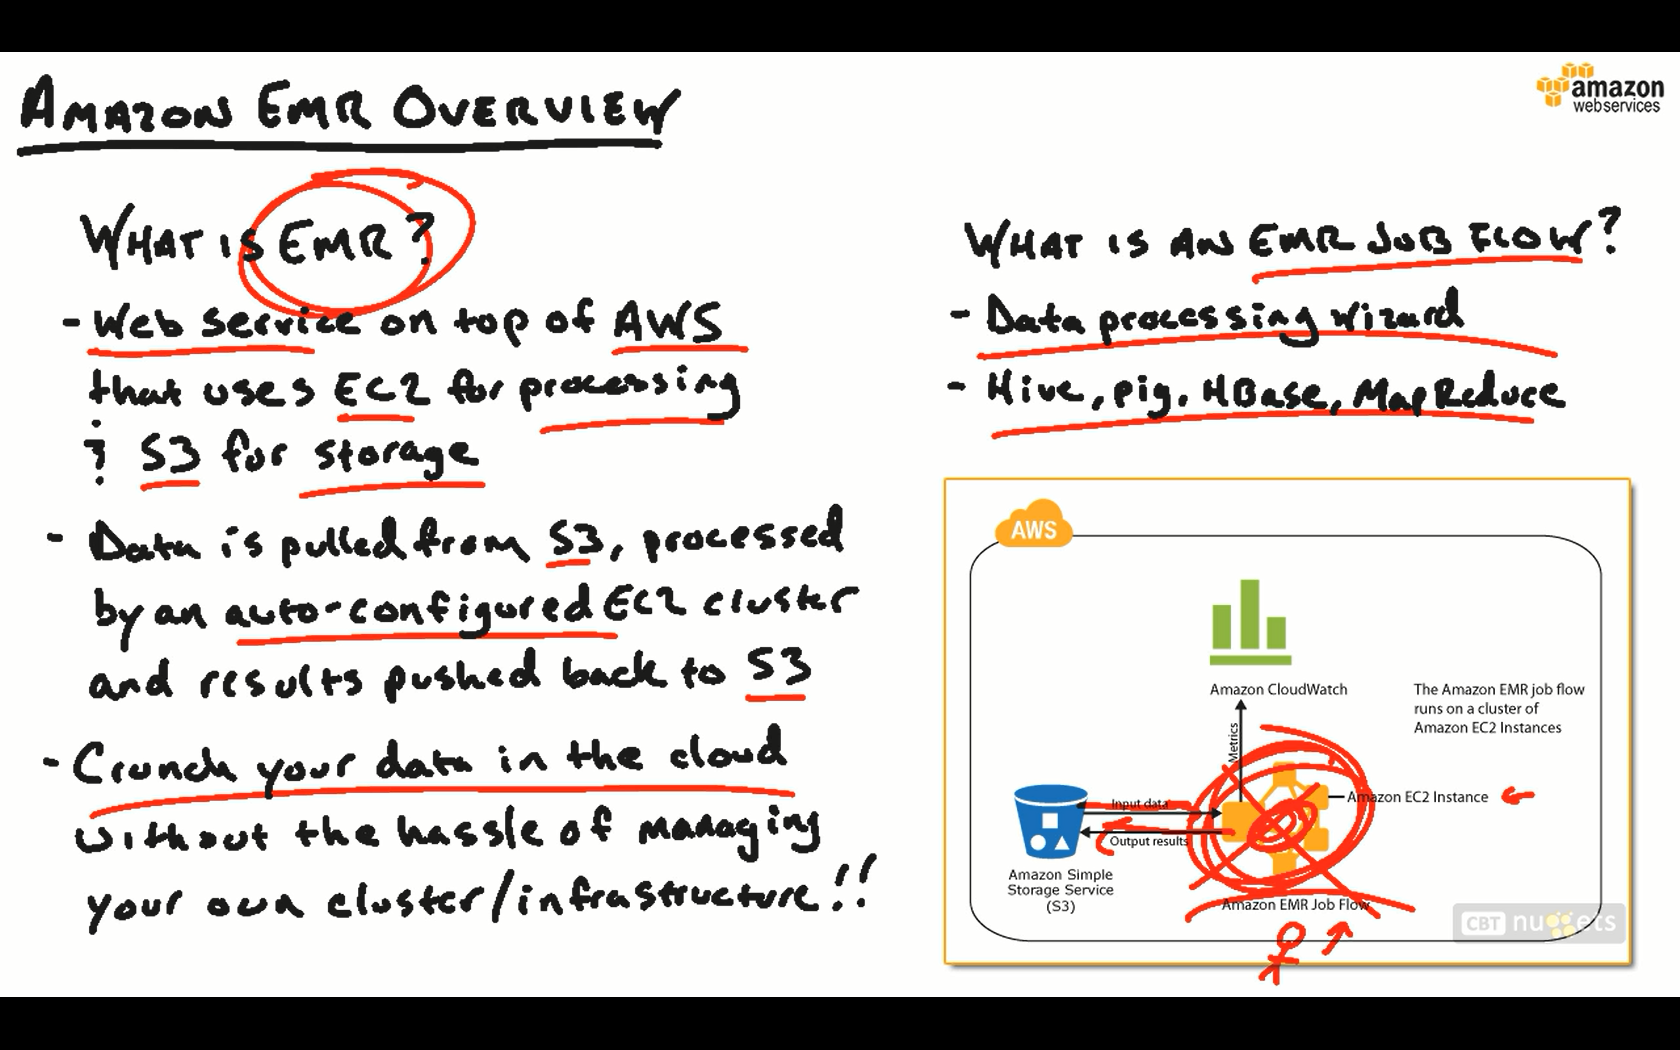 AMAZON EMR OVERVIEW
amazon
webservices
WHAT IS EMR?
- Web service on top of AWS
that uses EC2 for processing
& S3 for storage
- Data is pulled from S3, processed
by an auto-configured EC2 cluster
and results pushed back to S3
- Crunch your data in the cloud
without the hassle of managing
your own cluster/infrastructure!!
WHAT IS AN EMR JOB FLOW?
- Data processing wizard
- Hive, pig, HBase, MapReduce
AWS
Amazon CloudWatch
The Amazon EMR job flow
runs on a cluster of
Amazon EC2 Instances
Metrics
Input data
Amazon EC2 Instance
Output results
Amazon Simple
Storage Service
(S3)
Amazon EMR Job Flow
CBT nuggets